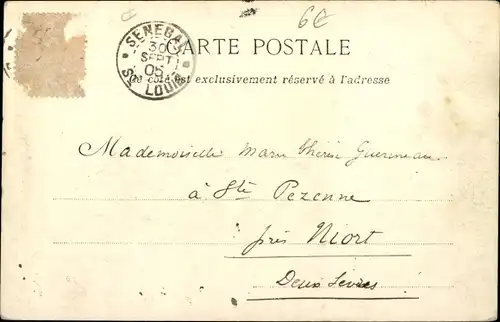 6€
SENEGAL
30
SEPT
05
St LOUIS
CARTE POSTALE
Ce côté est exclusivement réservé à l'adresse
Mademoiselle Marie Thérèse Guerineau
à Ste Pezenne
près Niort
Deux Sèvres